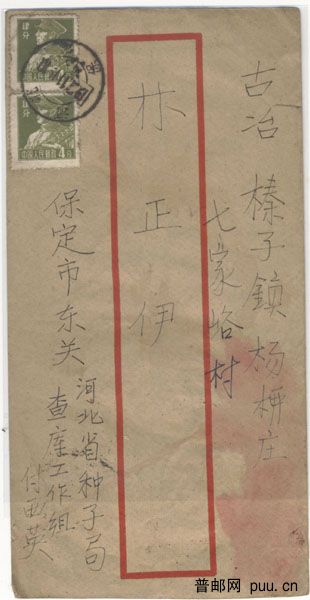 古冶 榛子鎮杨栟庄
七家峪村
林正伊
保定市东关
河北省种子局
查库工作组
付印英
肆分
中国人民邮政
肆分
中国人民邮政 4分
普邮网 puu.cn